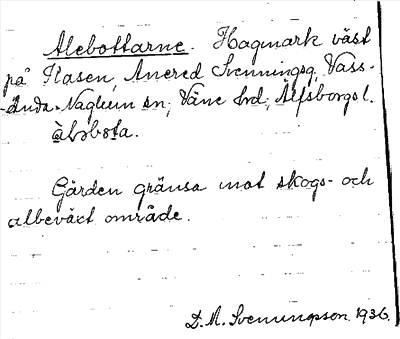 Alebottarne. Hagmark väst
på Åasen, Anered Svenningsg, Väss-
-ända-Naglum sn; Väne hd; Älfsborgs l.
àləbota.
Gärden gränsa mot skogs- och
albeväxt område.
D. M. Svenningsson. 1936.